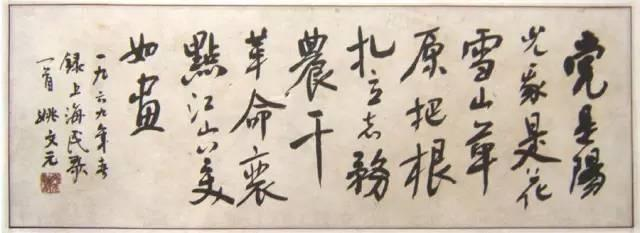 党是陽
光我是花
雪山草
原把根
扎立志務
農干
革命裝
點江山美
如畫
一九六九年春
錄上海民歌
一首 姚文元